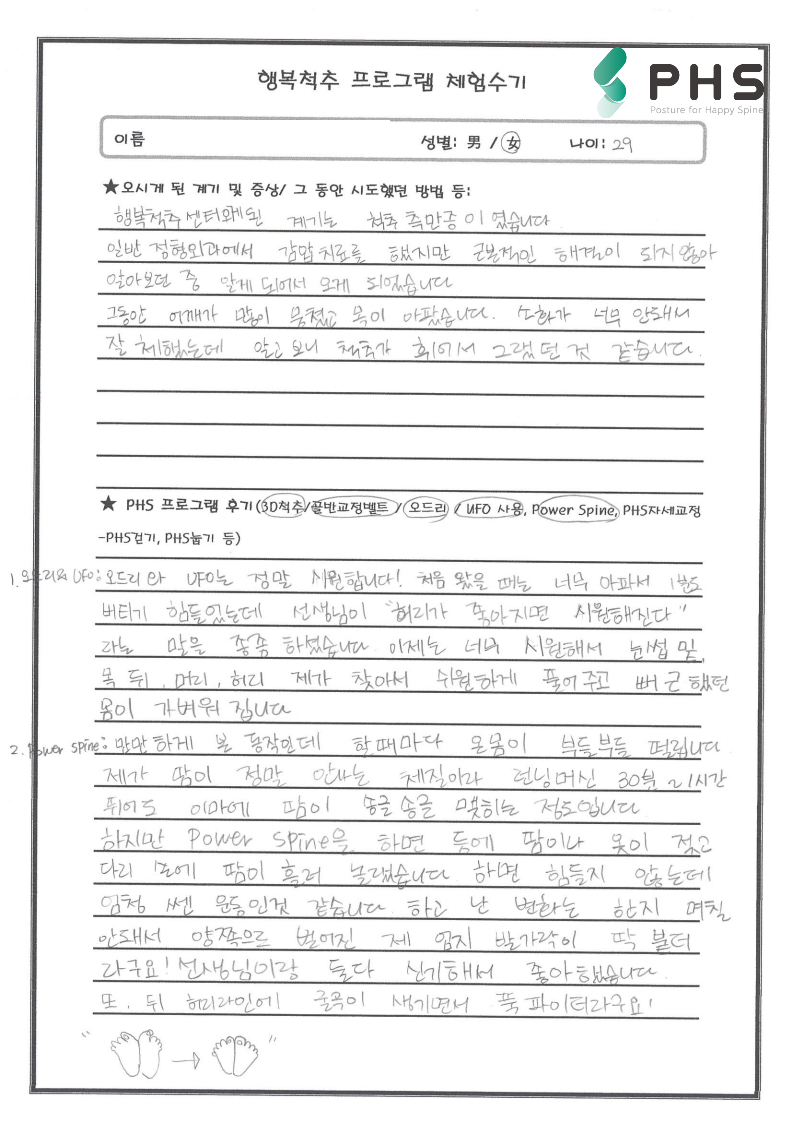 행복척추 프로그램 체험수기
PHS
Posture for Happy Spine
이름 성별: 男 / 女 나이: 29
★오시게 된 계기 및 증상/ 그 동안 시도했던 방법 등:
행복척추센터와 계기는 척추 측만증 이였습니다
일반 정형외과에서 감압치료를 했지만 근본적인 해결이 되지 않아
알아보던 중 알게 되어서 오게 되었습니다
그동안 어깨가 많이 뭉쳤고 목이 아팠습니다. 소화가 너무 안돼서
잘 체했는데 알고보니 척추가 휘어서 그랬던 것 같습니다.
★ PHS 프로그램 후기(3D척추/골반교정벨트 /오드리 / UFO 사용, Power Spine, PHS자세교정
-PHS걷기, PHS눕기 등)
1. 오드리& UFO: 오드리 와 UFO는 정말 시원합니다! 처음 왔을 때는 너무 아파서 1분도
버티기 힘들었는데 선생님이 "허리가 좋아지면 시원해진다"
라는 말을 종종 하셨습니다 이제는 너무 시원해서 눈썹 밑,
목 뒤, 머리, 허리 제가 찾아서 쉬원하게 풀어 주고 뻐근했던
몸이 가벼워 집니다
2. Power Spine: 만만하게 본 동작인데 할때마다 온몸이 부들부들 떨립니다
제가 땀이 정말 안나는 체질이라 런닝머신 30분 ~1시간
뛰어도 이마에 땀이 송글송글 맺히는 정도입니다
하지만 Power Spine을 하면 등에 땀이나 옷이 젖고
다리 땀이 흘러 놀랬습니다 하면 힘들지 않는데
엄청 쎈 운동인것 같습니다 하고 난 변화는 한지 며칠
안돼서 양쪽으로 벌어진 제 엄지 발가락이 딱 붙더
라구요! 선생님이랑 둘다 신기해서 좋아했습니다
또, 뒤 허리라인에 굴곡이 생기면서 푹 파이더라구요!
" → "